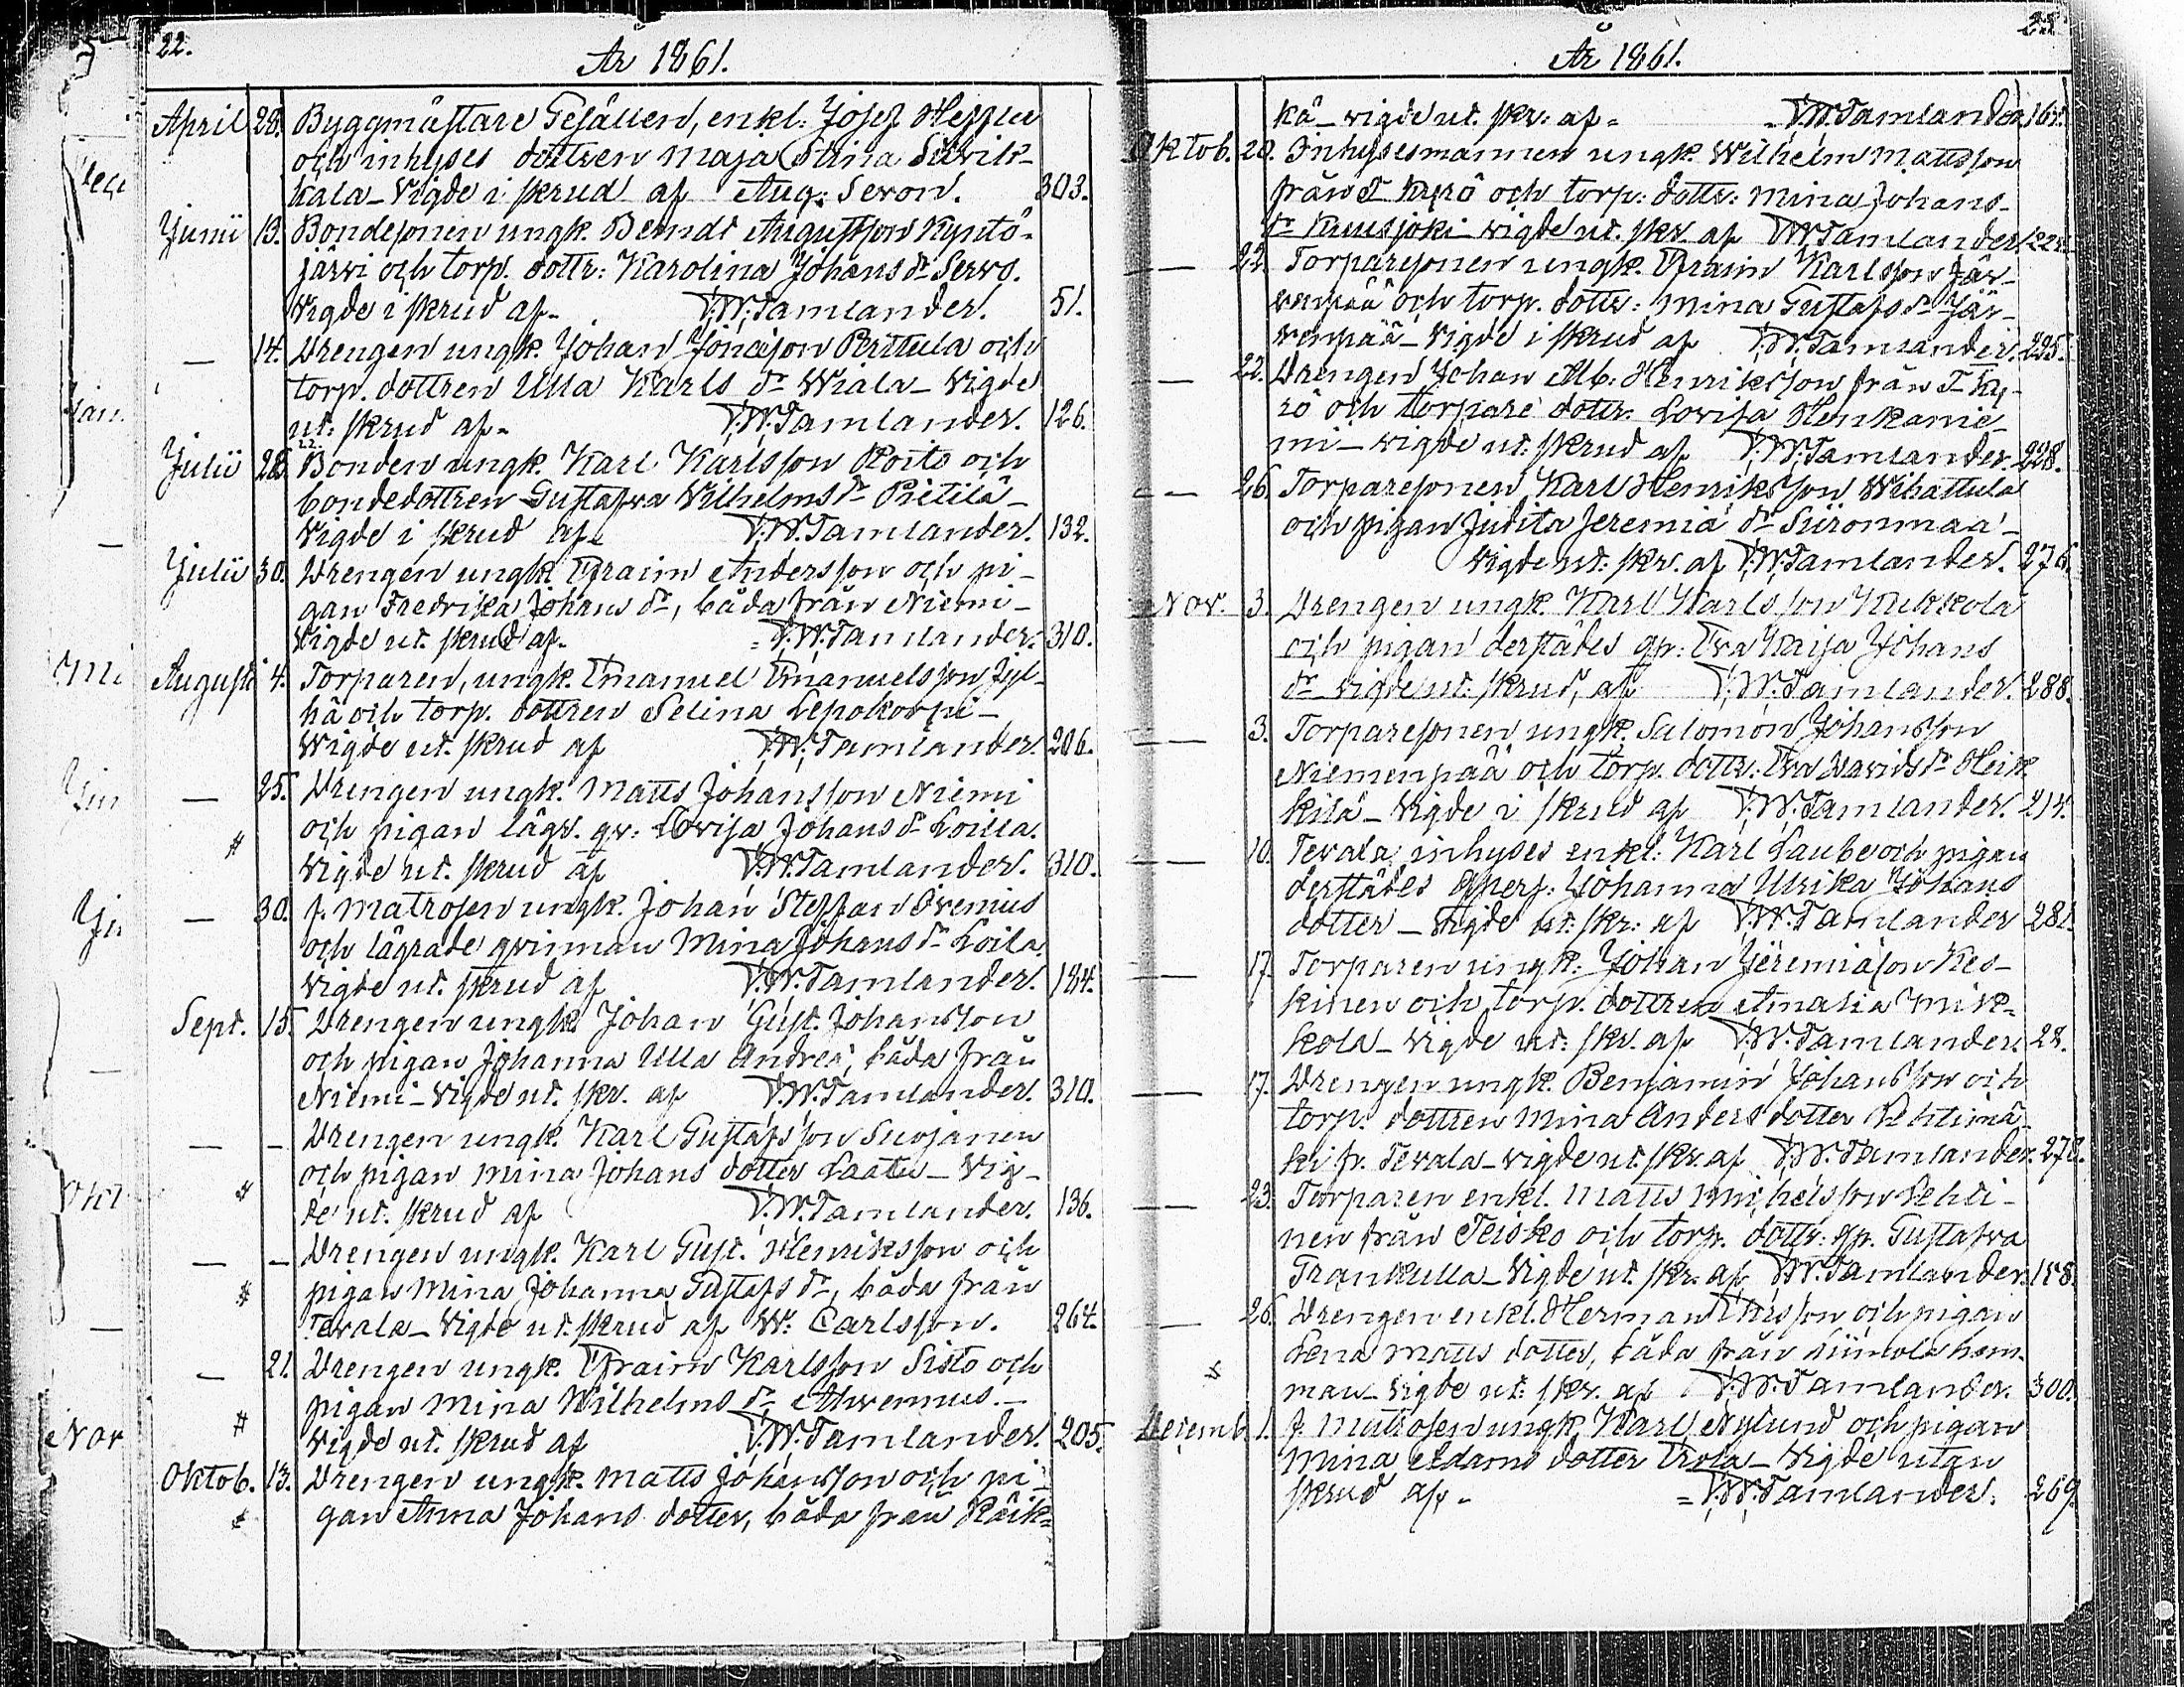 22.
År 1861.
April 28. Byggmästare Gesällen, enkl: Josef
och inhyses dottren Maja Stina Suvik-
kala _ Vigde i skrud af Aug: Seron. 303.
Junii 13. Bondesonen ungk. Berndt Augustsson Kyntö-
järvi och torp. dottr: Karolina Johans dr Servo.
Vigde i skrud af V.W. Tamlander. 51.
— 14. Drengen ungk. Johan Jonasson Prittula och
torp. dottren Ulla Karls dr Wiala _ Vigde
ut: skrud af V.W. Tamlander. 126.
Julii 28. Bonden ungk. Karl Karlsson Roito och
bondedottren Gustafva Vilhelms dr Pietilä _
Vigde i skrud af V.W. Tamlander. 132.
Julii 30. Drengen ungk. Efraim Andersson och pi-
gan Fredrika Johans dr, båda från Niemi _
Vigde ut. skrud af V.W. Tamlander. 310.
Augusti 4. Torparen, ungk. Emanuel Emanuelsson Jyl-
hä och torp. dottren Selina Lepokorpi _
Vigde ut. skrud af V.W. Tamlander. 206.
— 25. Drengen ungk. Matts Johansson Niemi
och pigan lägr. qv: Lovisa Johans dr Loilla.
# Vigde ut. skrud af V.W. Tamlander. 310.
— 30. f. Matrosen ungk. Johan Steffan Ovenius
och lägrade qvinnan Mina Johans dr Loila.
Vigde ut. skrud af V.W. Tamlander. 184.
Sept. 15. Drengen ungk. Johan Gust. Johansson
och pigan Johanna Ulla Andrea, båda från
Niemi _ Vigde ut. skr. af V.W. Tamlander. 310.
— – Drengen ungk. Karl Gustafsson Suojanen
och pigan Mina Johans dotter Laatu _ Vig-
# de ut. skrud af V.W. Tamlander. 136.
— – Drengen ungk. Karl Gust. Henriksson och
# pigan Mina Johanna Gustafs dr, båda från
Tevala _ Vigde ut. skrud af W. Carlsson. 264.
— 21. Drengen ungk. Efraim Karlsson Sisto och
pigan Mina Wilhelms dr Ahvenus. _
# Vigde ut. skrud af V.W. Tamlander. 205.
Oktob. 13. Drengen ungk. Matts Johansson och pi-
# gan Anna Johans dotter, båda från Räik-
År 1861.
kä _ vigde ut. skr: af V.W. Tamlander. 161.
Oktob. 20. Inhysesmannen ungk. Wilhelm Mattsson
från T Kyrö och torp: dottr: Mina Johans
dr Kuusjoki _ vigde ut. skr. af V.W. Tamlander. 222.
— 22. Torparesonen ungk. Efraim Karlsson Jär-
venpää och torp. dottr: Mina Gustafs dr Jär-
venpää _ Vigde i skrud af V.W. Tamlander. 225.
— 22. Drengen Johan Alb. Henriksson från T Ky-
rö och torpare dottr. Lovisa Honkanie-
mi _ vigde ut: skrud af V.W. Tamlander. 228.
— 26. Torparesonen Karl Henriksson Wihattula
och pigan Judita Jeremiä dr Siironmaa _
Vigde ut: skr. af V.W. Tamlander. 276.
Nov. 3. Drengen ungk. Karl Karlsson Kukkola
och pigan derstädes qv: Eva Kaisa Johans
dr vigde ut: skrud, af V.W. Tamlander. 288.
— 3. Torparesonen ungk. Salomon Johansson
Niemenpää och torp. dottr: Eva Davids dr Heik
kilä _ Vigde i skrud af V.W. Tamlander. 214.
— 10. Tevala inhyses enkl: Karl Laube och pigan
derstädes Johanna Ulrika Johans
dotter _ Vigde ut: skr: af V.W. Tamlander 281.
— 17. Torparen ungk: Johan Jeremiäson Kes-
kinen och torp. dottren Amalia Mik-
kola _ Vigde ut: skr. af V.W. Tamlander. 28.
— 17. Drengen ungk. Benjamin Johansson och
torp. dottren Mina Anders dotter Lehtimä-
ki fr. Tevala _ vigde ut. skr. af V.W. Tamlander. 278.
— 23. Torparen enkl. Matts Michelsson Lehti-
nen från Teisko och torp. dottr: qv. Gustafva
Frankulla _ Vigde ut. skr. af V.W. Tamlander. 158.
— 26. Drengen enkl. Herman Thisson och pigan
Lena Matts dotter, båda från hem-
man _ Vigde ut: skr. af V.W. Tamlander. 300.
Decemb. 1. f. Matrosen ungk. Karl Nylund och pigan
Mina Adams dotter Erola _ Vigde utan
skrud af V.W. Tamlander. 269.